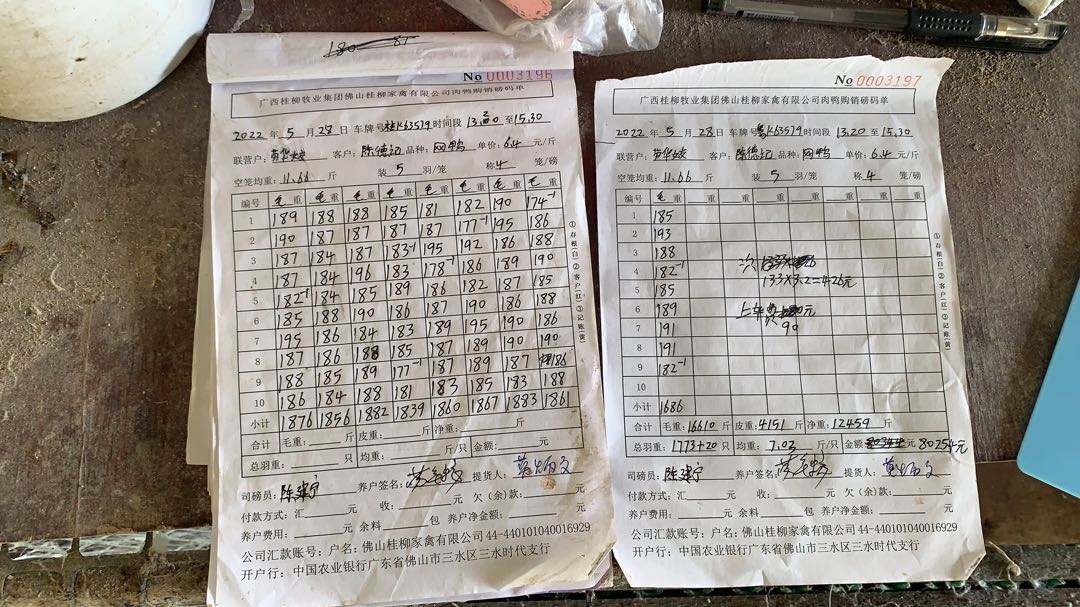 180 87
No 0003196
广西桂柳牧业集团佛山桂柳家禽有限公司肉鸭购销磅码单
2022 年 5 月 28 日 车牌号 K63579 时间段 13.20 至 15.30
联营户： 客户：陈德记 品种：网鸭 单价：6.4 元/斤
空笼均重：11.66 斤 装 5 羽/笼 称 4 笼/磅
编号 毛重 毛重 毛重 毛重 毛重 毛重 毛重 毛重
1 189 188 188 185 181 182 190 174-1
2 190 187 187 187 187 177-1 195 186
3 187 184 187 183-1 195 192 186 188
4 187 184 196 183 178-1 186 189 190
5 182-1 184 185 189 186 182 187 185
6 185 188 190 186 187 190 186 188
7 195 186 184 183 189 195 190 186
8 187 186 188 185 187 189 190 190
9 188 185 189 177-1 187 189 187 186
10 186 184 188 181 183 185 183 188
小计 1876 1856 1882 1839 1860 1867 1883 1861
合计 毛重： 斤 皮重： 斤 净重： 斤
总羽重： 只 均重： 斤/只 金额： 元
司磅员：陈建宁 养户签名： 提货人：
付款方式：汇 元 收： 元 欠（余）款： 元
养户费用： 元 余料 包 养户净金额： 元
公司汇款账号：户名：佛山桂柳家禽有限公司44-440101040016929
开户行：中国农业银行广东省佛山市三水区三水时代支行
①存根(白)②客户(红)③记账(黄)
No 0003197
广西桂柳牧业集团佛山桂柳家禽有限公司肉鸭购销磅码单
2022 年 5 月 28 日 车牌号 K63579 时间段 13.20 至 15.30
联营户： 客户：陈德记 品种：网鸭 单价：6.4 元/斤
空笼均重：11.66 斤 装 5 羽/笼 称 4 笼/磅
编号 毛重 重 重 重 重 重 重 重
1 185
2 193
3 188
4 182-1
5 185
6 189
7 191
8 191
9 182-1
10
小计 1686
次
133×3.2=426元
上车费 元
90
合计 毛重：16610 斤 皮重：4151 斤 净重：12459 斤
总羽重：1773+20 只 均重：7.03 斤/只 金额 元 80254元
司磅员：陈建宁 养户签名： 提货人：
付款方式：汇 元 收： 元 欠（余）款： 元
养户费用： 元 余料 包 养户净金额： 元
公司汇款账号：户名：佛山桂柳家禽有限公司44-440101040016929
开户行：中国农业银行广东省佛山市三水区三水时代支行
①存根(白)②客户(红)③记账(黄)